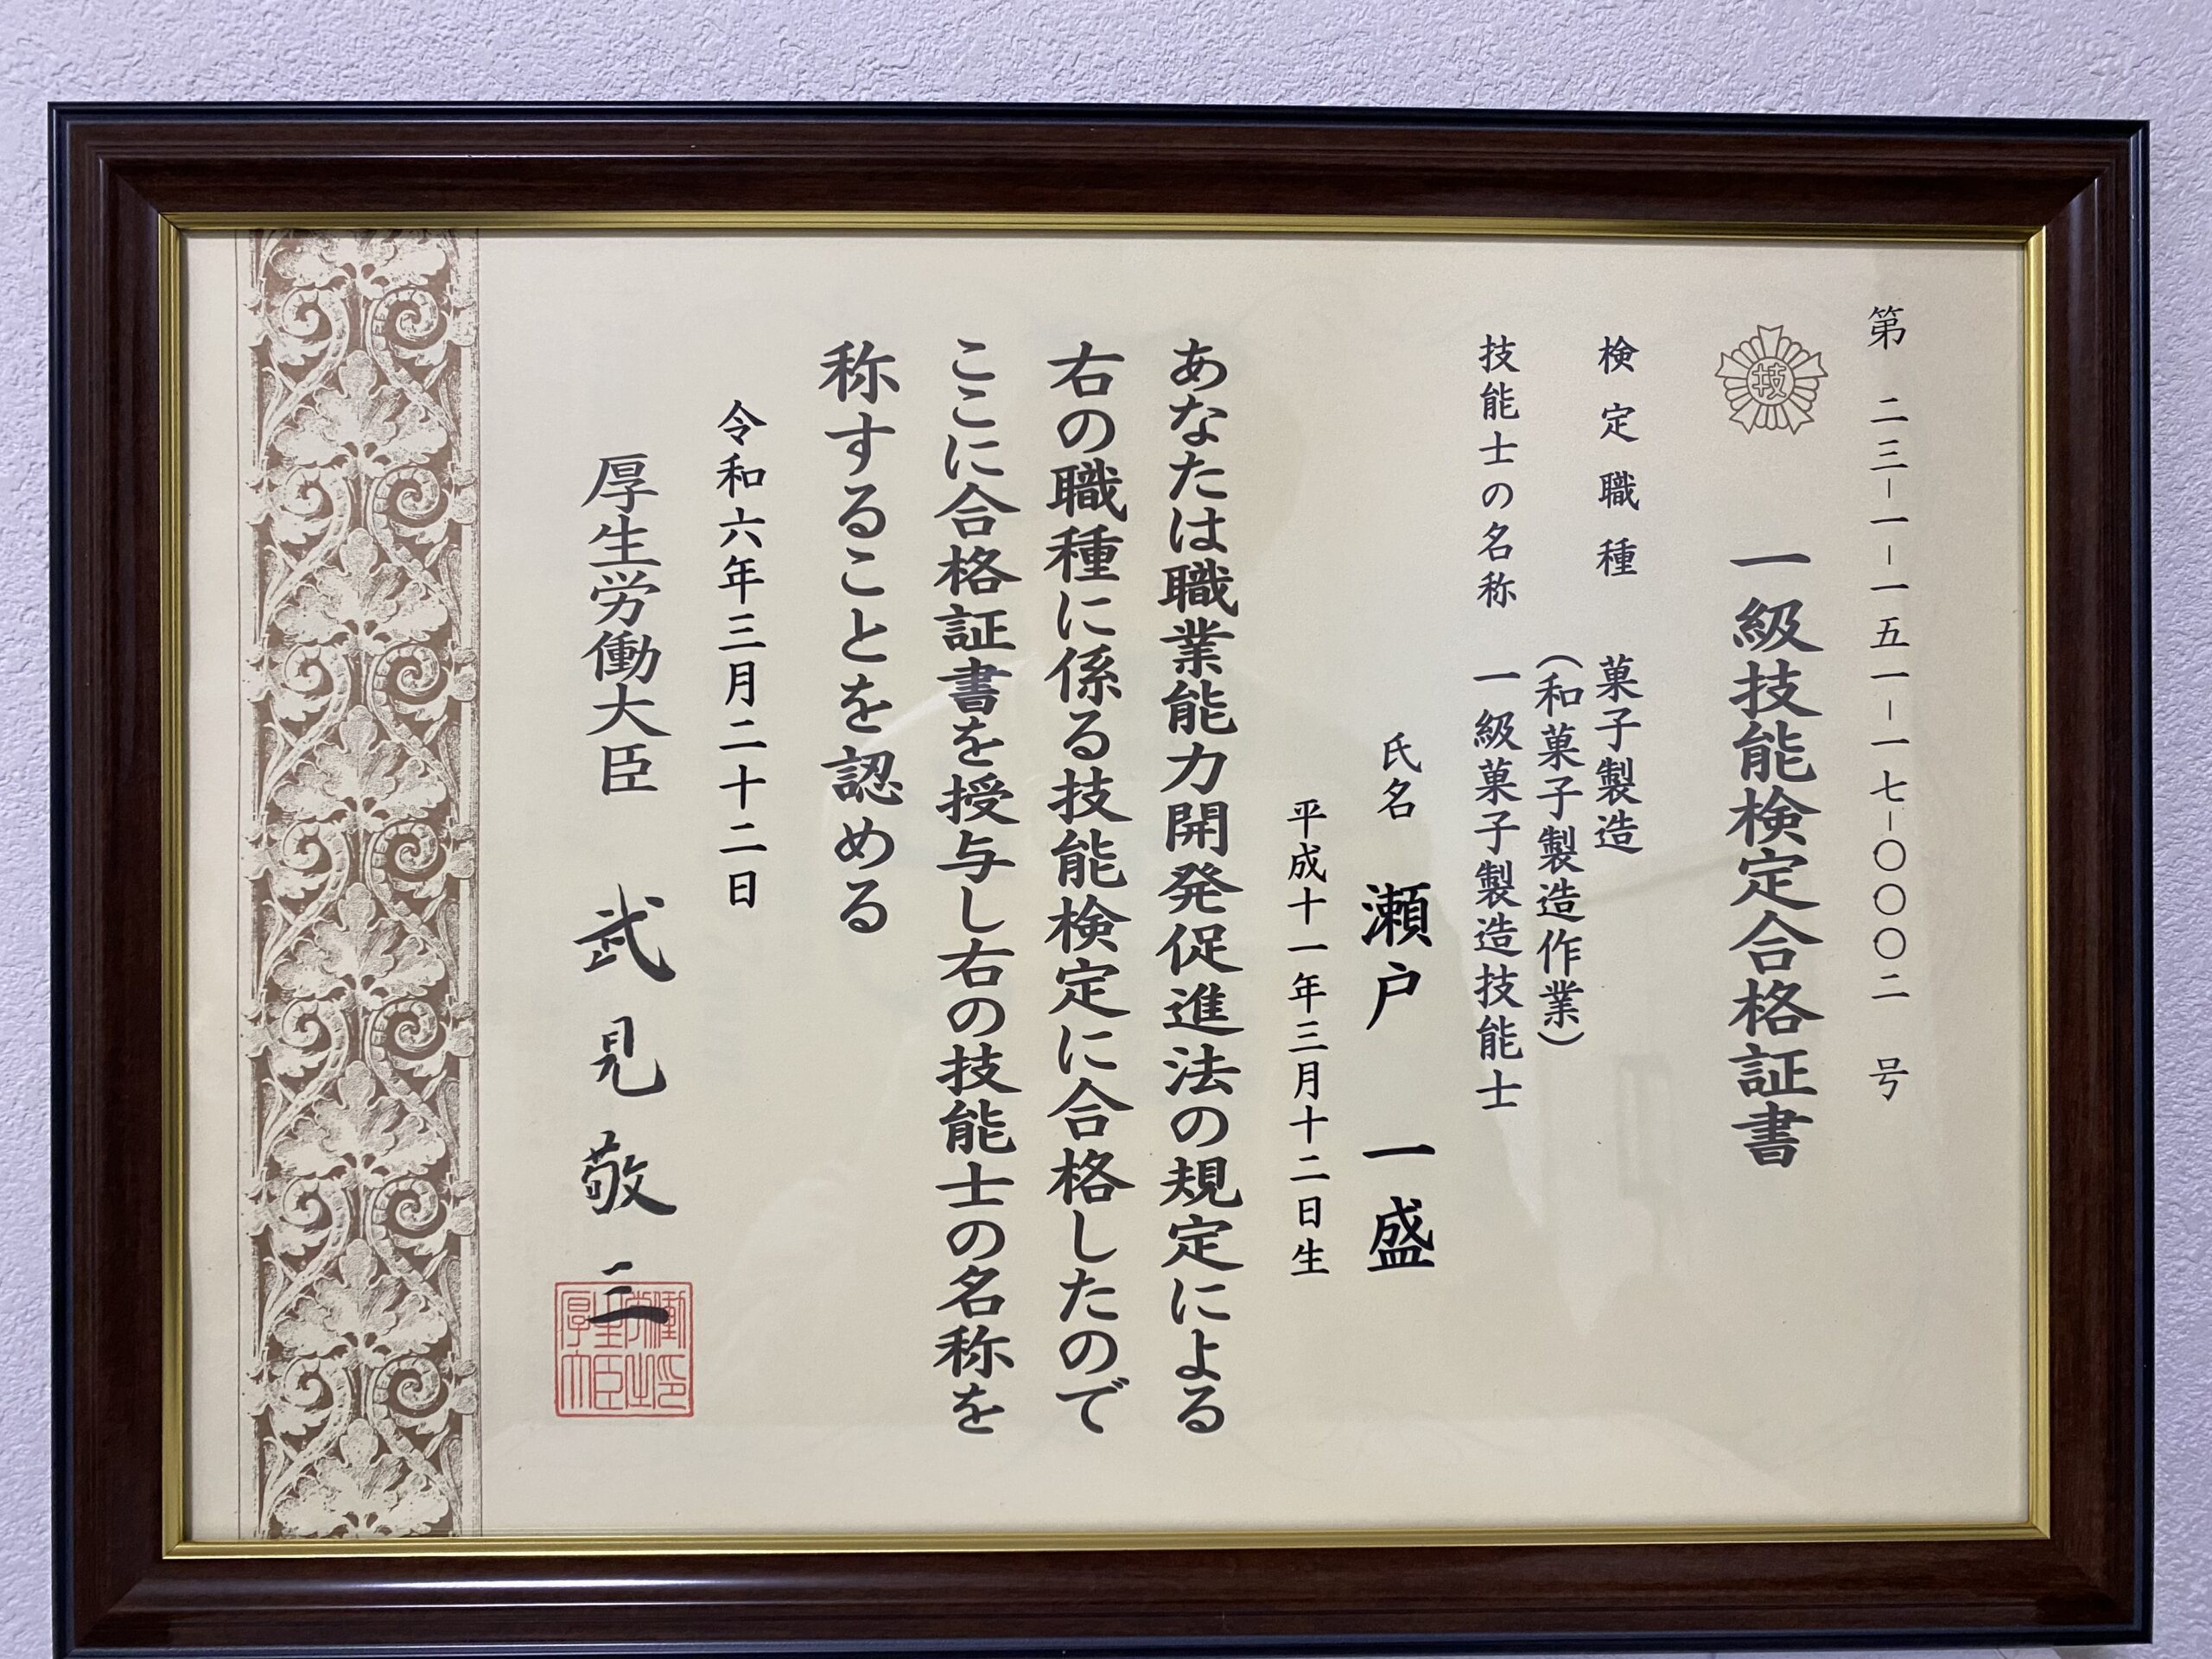 第 二三-一-一五一-一七-〇〇〇二 号
技
一級技能検定合格証書
検定職種 菓子製造
(和菓子製造作業)
技能士の名称 一級菓子製造技能士
氏名 瀬戸 一盛
平成十一年三月十二日生
あなたは職業能力開発促進法の規定による
右の職種に係る技能検定に合格したので
ここに合格証書を授与し右の技能士の名称を
称することを認める
令和六年三月二十二日
厚生労働大臣 武見敬三
厚生労働大臣之印